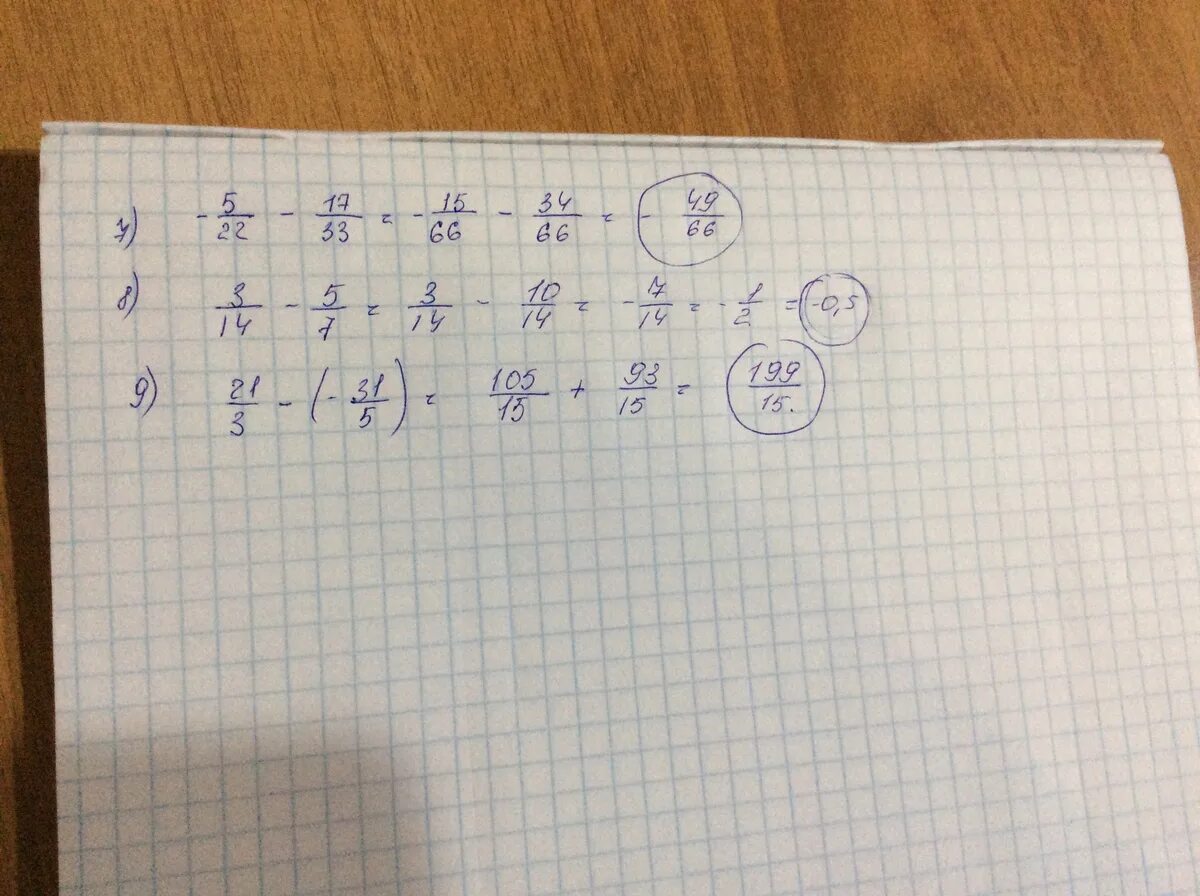 7) -5/22 - 17/33 = -15/66 - 34/66 = - 49/66
8) 3/14 - 5/7 = 3/14 - 10/14 = -7/14 = -1/2 = -0,5
9) 21/3 - (-31/5) = 105/15 + 93/15 = 199/15.